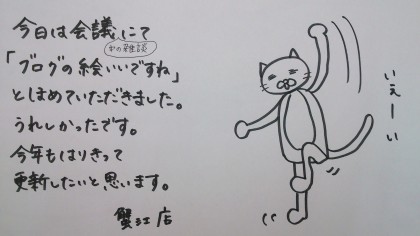 今日は会議にて
中の雑談
「ブログの絵いいですね」
とほめていただきました。
うれしかったです。
今年もはりきって
更新したいと思います。
蟹江店
いえーい